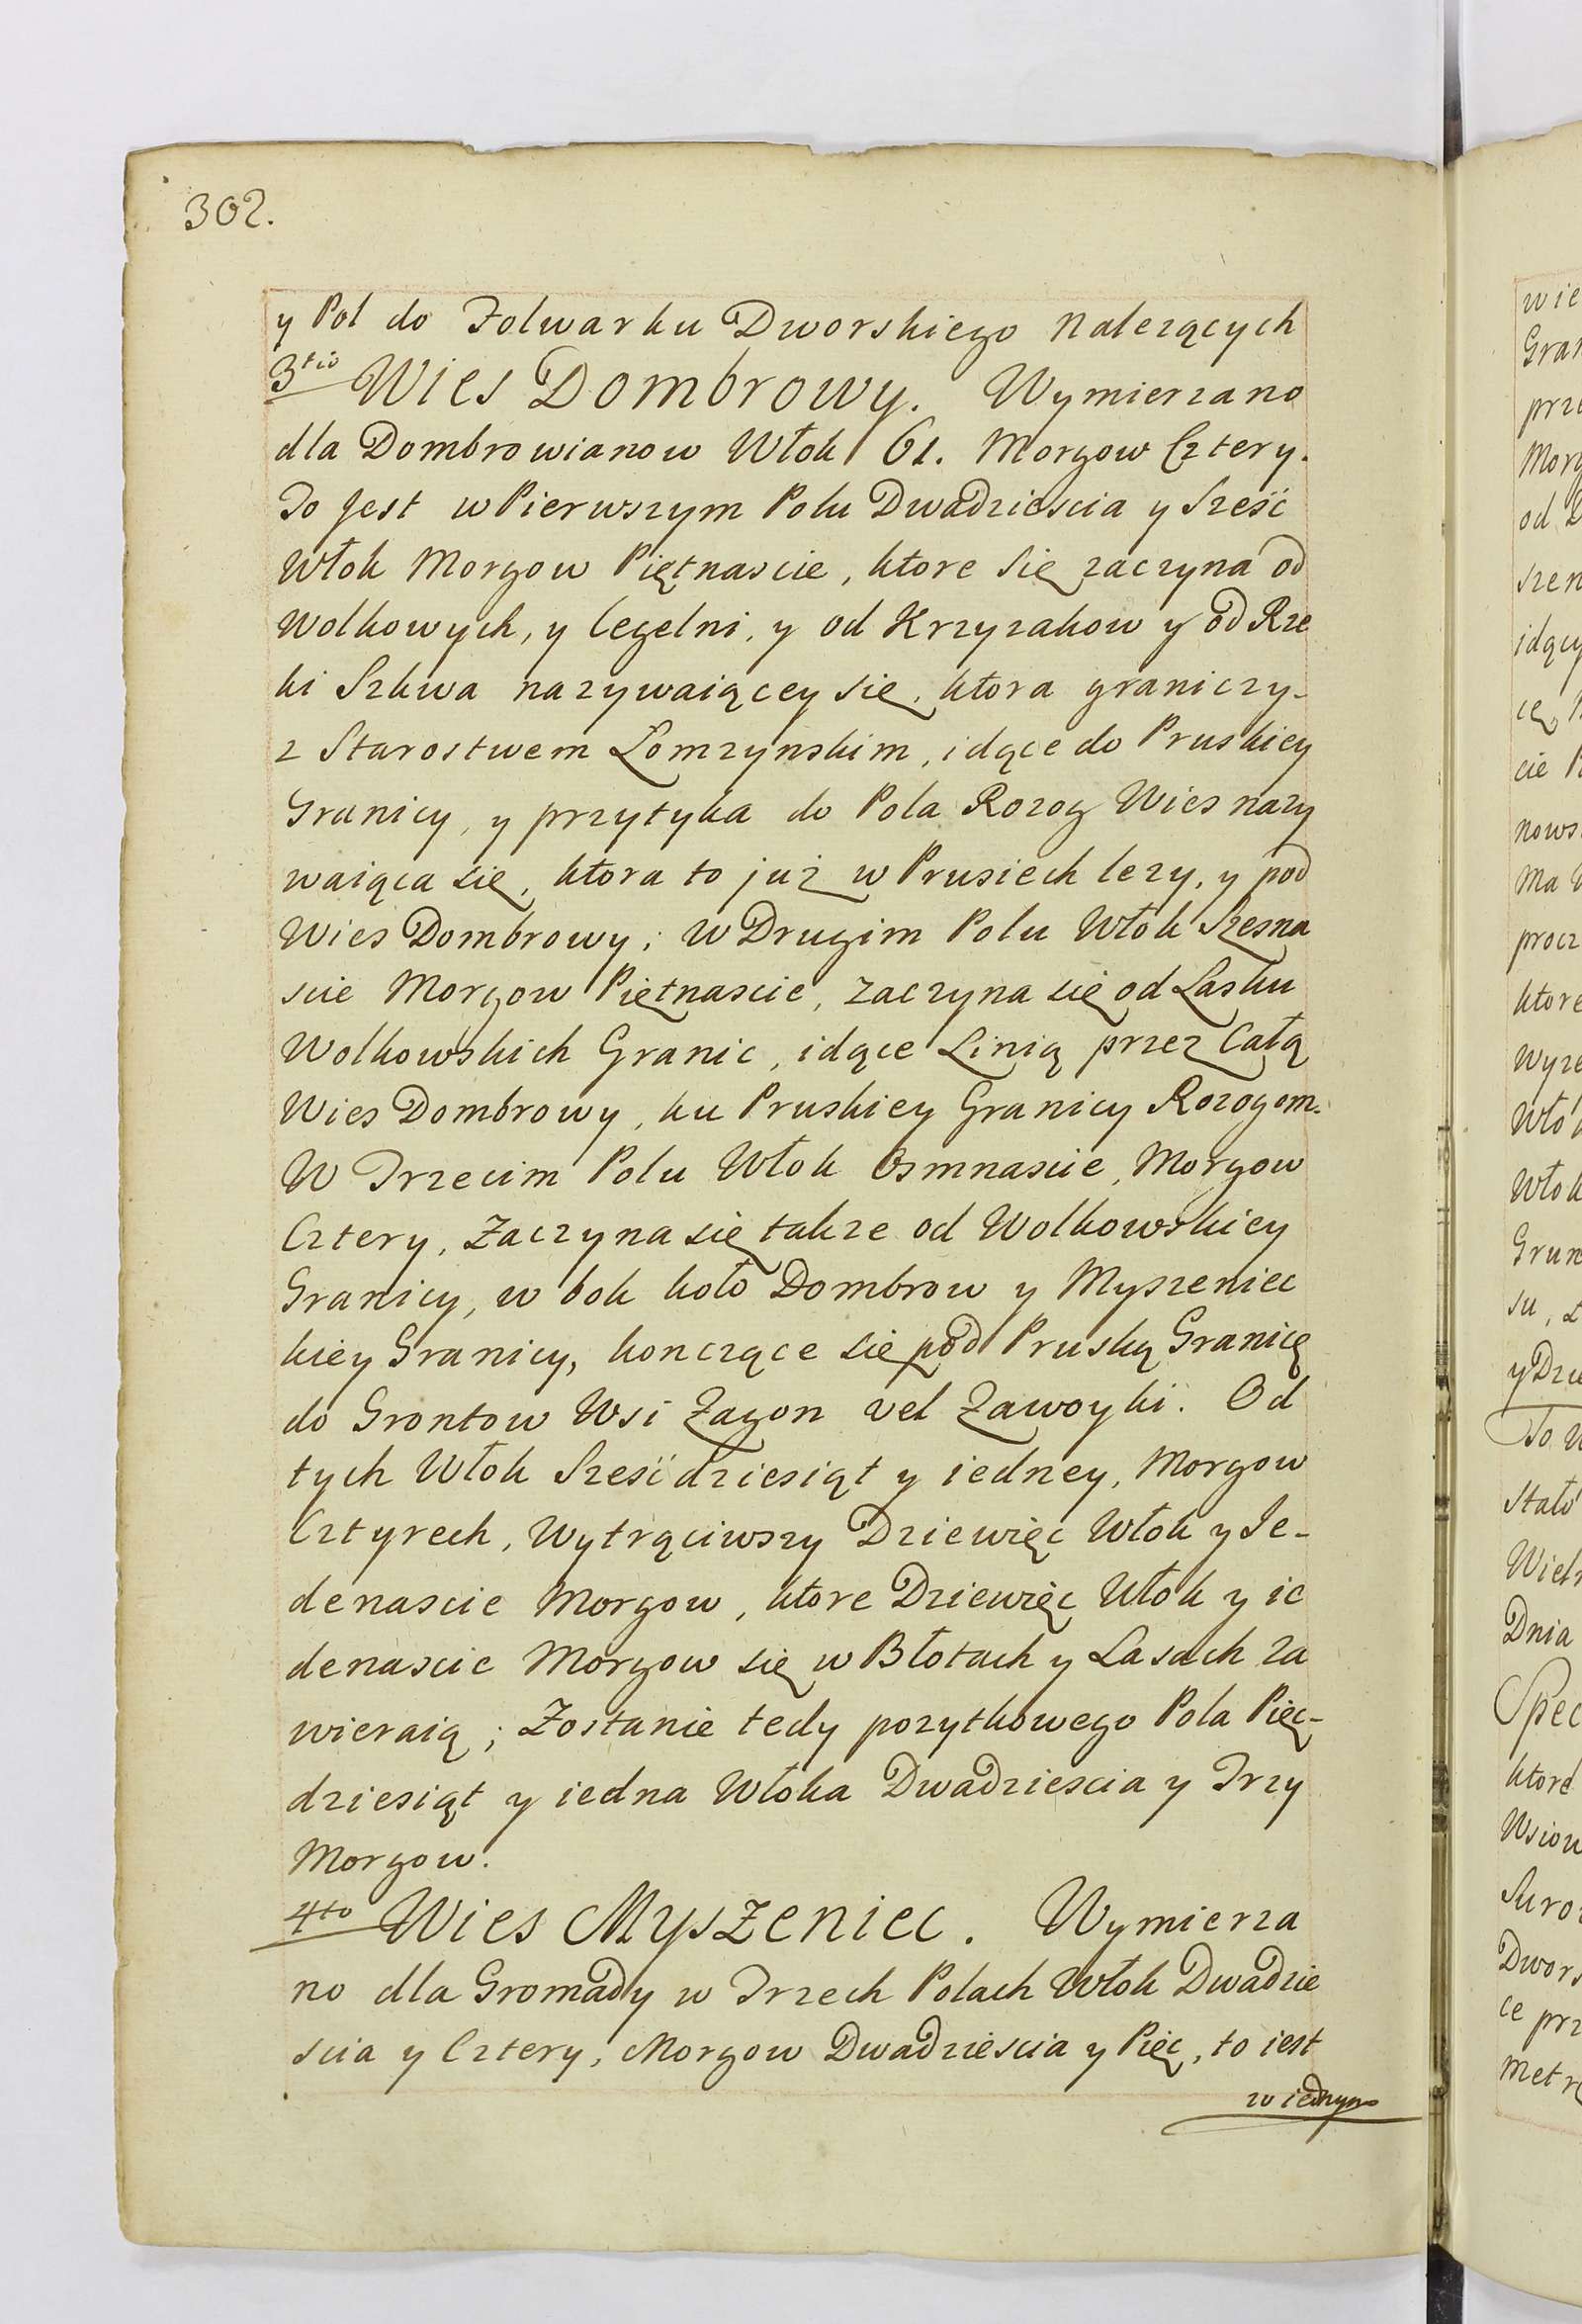 302.
y Pol do Folwarku Dworskiego nalezących
3tio Wies Dombrowy. Wymierzano
dla Dombrowianow Włok 61. Morgow Cztery.
To Jest w Pierwszym Polu Dwadziescia y Sześć
Włok Morgow Piętnascie, ktore się zaczyna od
Wolkowych, y Cegelni, y od Krzyzakow y od Rze
ki Szkwa nazywaiącey się, ktora graniczy-
z Starostwem Łomzynskim, idące do Pruskiey
Granicy, y przytyka do Pola Rozog Wies nazy
waiąca się, ktora to już w Prusiech lezy, y pod
Wies Dombrowy; w Drugim Polu Włok Szesna
scie Morgow Piętnascie, zaczyna się od Lasku
Wolkowskich Granic, idące Linią przez Całą
Wies Dombrowy, ku Pruskiey Granicy Rozogom.
W Trzecim Polu Włok Osmnascie, Morgow
Cztery, Zaczyna się takze od Wolkowskiey
Granicy, w bok koło Dombrow y Myszeniec
kiey Granicy, konczące się pod Pruską Granicę
do Grontow Wsi Zagon vel Zawoyki. Od
tych Włok Sześćdziesiąt y iedney, Morgow
Cztyrech, Wytrąciwszy Dziewięc Włok y Je-
denascie Morgow, ktore Dziewięc Włok y ie
denascie Morgow się w Błotach y Lasach za
wieraią; Zostanie tedy pozytkowego Pola Pięc-
dziesiąt y iedna Włoka Dwadziescia y Trzy
Morgow.
4to Wies Myszeniec. Wymierza
no dla Gromady w Trzech Polach Włok Dwadzie
scia y Cztery, Morgow Dwadziescia y Pięc, to iest
w iednym
wie
Gran
prze
Morg
od
szen
idący
cę
cie
nows
ma
procz
ktore
Wyze
Włok
Włok
Grun
su,
y Dzie
To
Stało
Wiel
Dnia
Spec
ktore
Wsiow
Suro
Dwors
ce prz
metr